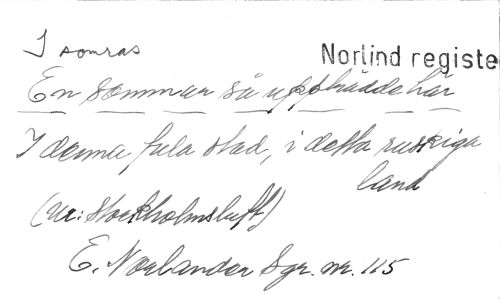 I somras
Norlind registe
En sommar så uppträdde här
I denna fula stad, i detta ruskiga
land
(ur: Stockholmsluft)
E. Norlander Sgr. nr. 115